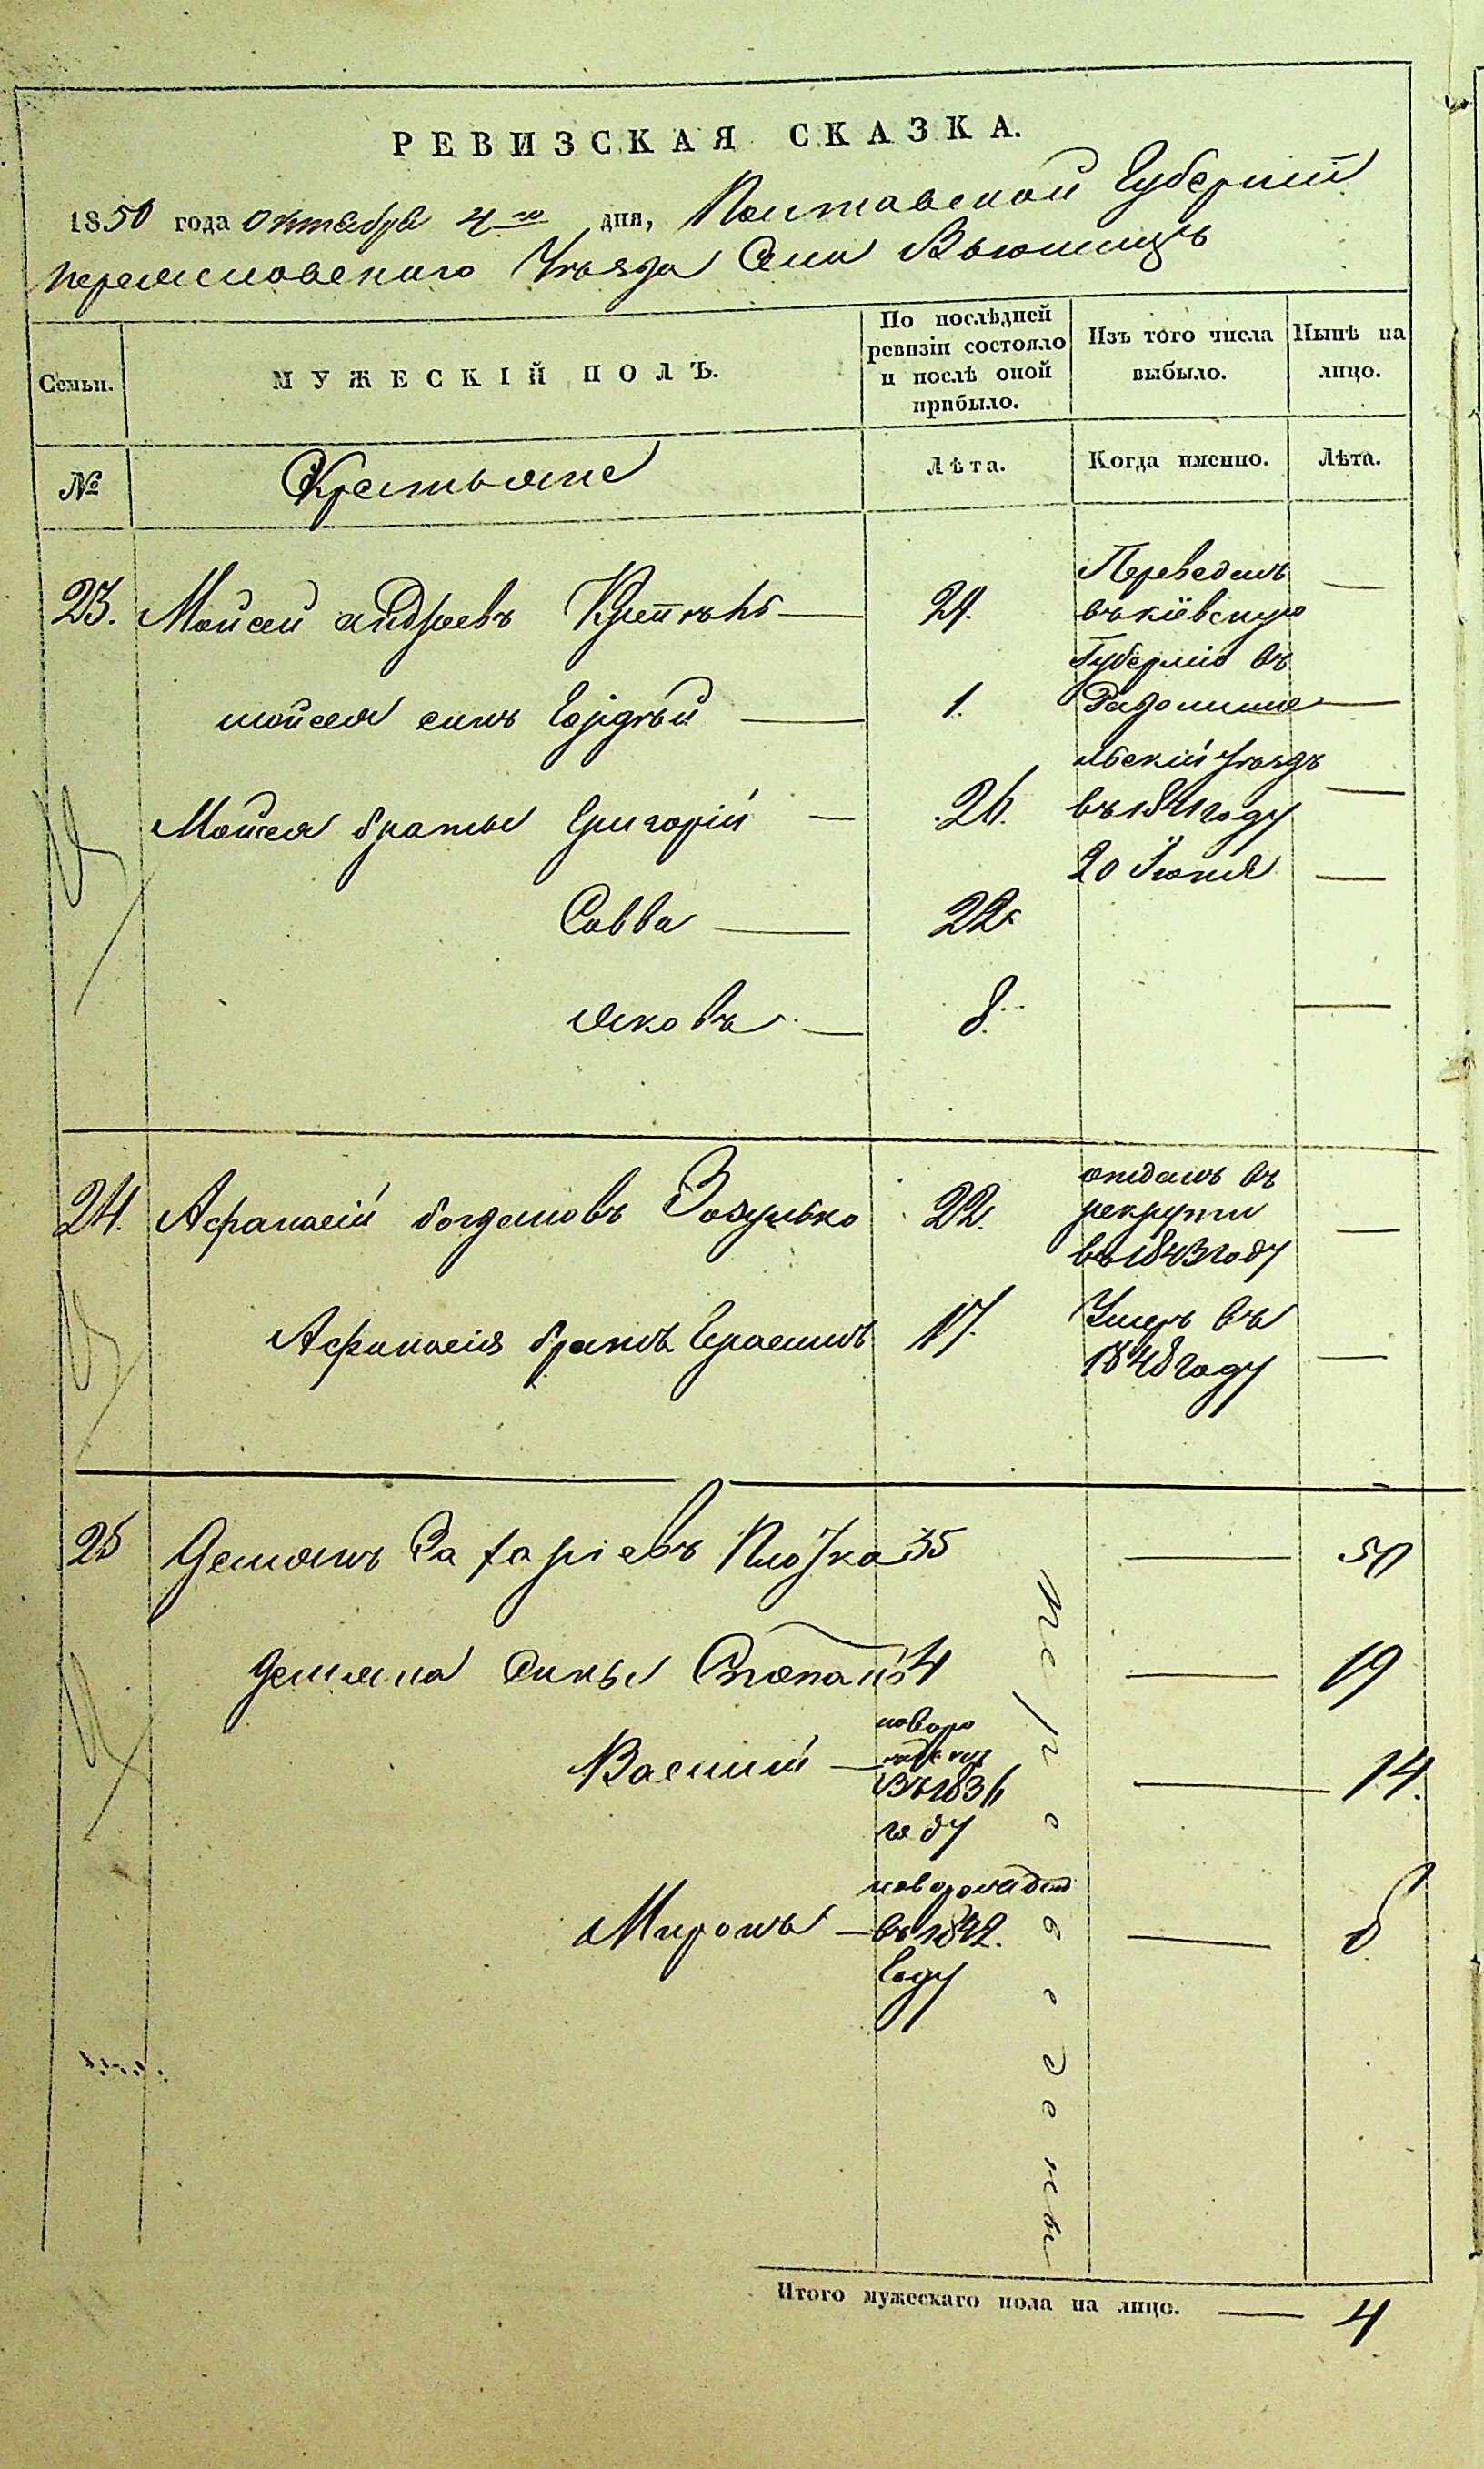 РЕВИЗСКАЯ СКАЗКА.
1850 года Октября 4го дня, Полтавской Губерніи
Переясловского Уѣзда Села Вьюнищъ
Семьи.
МУЖЕСКІЙ ПОЛЪ.
По послѣдней ревизіи состояло и послѣ оной прибыло.
Изъ того числа выбыло.
Нынѣ на лицо.
№
Крестьяне
Лѣта.
Когда именно.
Лѣта.
23. Мойсей андреевъ 29. Переведенъ —
въ кіевскую
Губернію въ
мойсея синъ 1. Радомысле —
льскій уѣздъ
Мойсея братья Григорій — 26. въ 1841 году —
20 Іюня —
Савва — 22
яковъ — 8. —
24. Афанасій богдановъ Зозулько 22. отданъ въ —
рекруты
въ 1843 году
Афанасія братъ Герасимъ 17. Умеръ въ —
1848 году
25 Демьянъ Захаріевъ 35 — 50
Демьяна сины Степанъ 4 — 19
Василий — новоро
жденъ
въ 1836 — 14.
году
Миронъ — новорожден
въ 1842. — 8
Году
переведены
Итого мужескаго пола на лицо. — 4